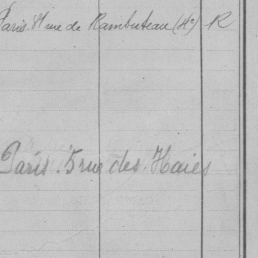 Paris. 11 rue de Rambuteau (4e) R
Paris. 5 rue des Haies